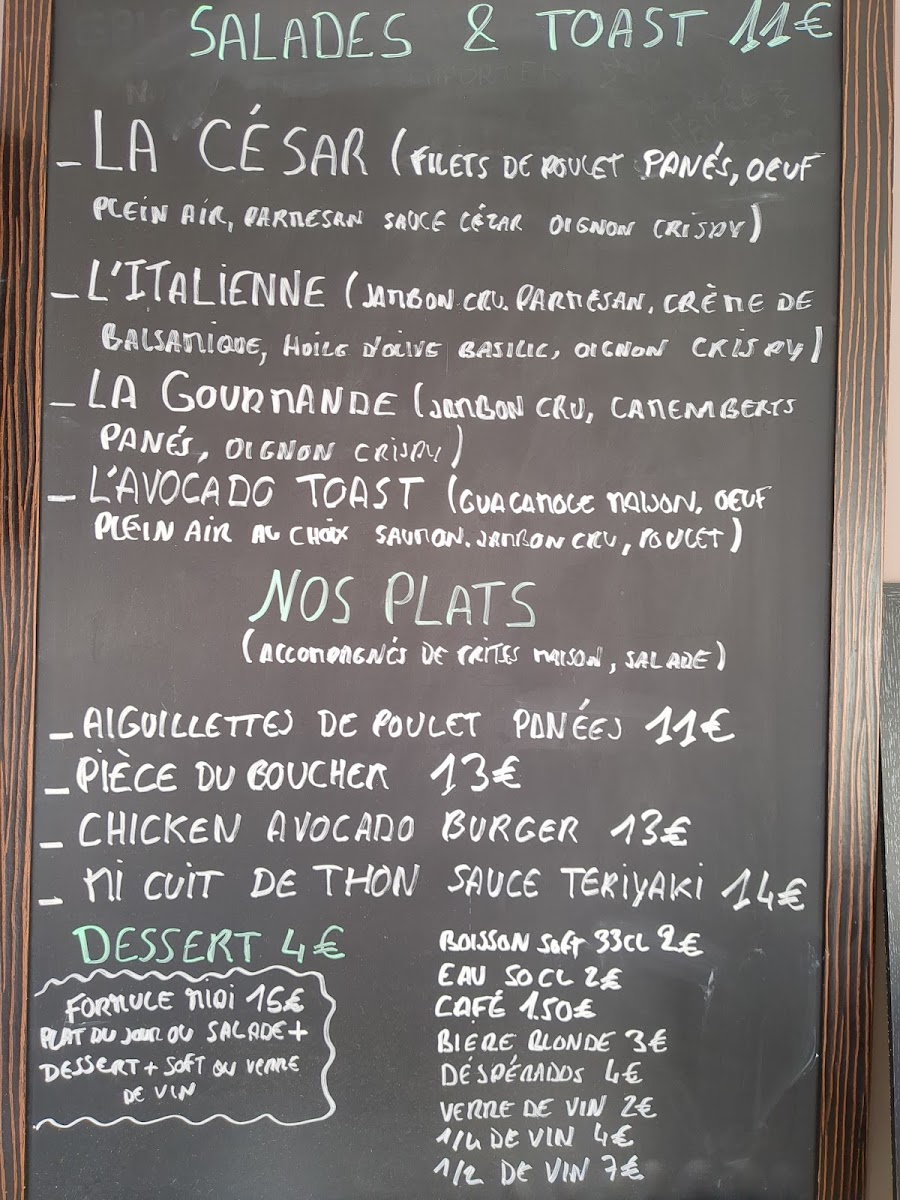 SALADES & TOAST 11€
- LA CÉSAR (FILETS DE POULET PANÉS, OEUF
PLEIN AIR, PARMESAN SAUCE CÉZAR OIGNON CRISPY)
- L'ITALIENNE (JAMBON CRU. PARMESAN, CRÈME DE
BALSAMIQUE, HUILE D'OLIVE BASILIC, OIGNON CRISPY)
- LA GOURMANDE (JAMBON CRU, CAMEMBERTS
PANÉS, OIGNON CRISPY)
- L'AVOCADO TOAST (GUACAMOLE MAISON, OEUF
PLEIN AIR AU CHOIX SAUMON, JAMBON CRU, POULET)
NOS PLATS
(ACCOMPAGNÉS DE FRITES MAISON, SALADE)
- AIGUILLETTES DE POULET PANÉES 11€
- PIÈCE DU BOUCHER 13€
- CHICKEN AVOCADO BURGER 13€
- MI CUIT DE THON SAUCE TERIYAKI 14€
DESSERT 4€
FORMULE MIDI 15€
PLAT DU JOUR OU SALADE +
DESSERT + SOFT OU VERRE
DE VIN
BOISSON SOFT 33CL 2€
EAU 50CL 2€
CAFÉ 1.50€
BIERE BLONDE 3€
DÉSPÉRADOS 4€
VERRE DE VIN 2€
1/4 DE VIN 4€
1/2 DE VIN 7€